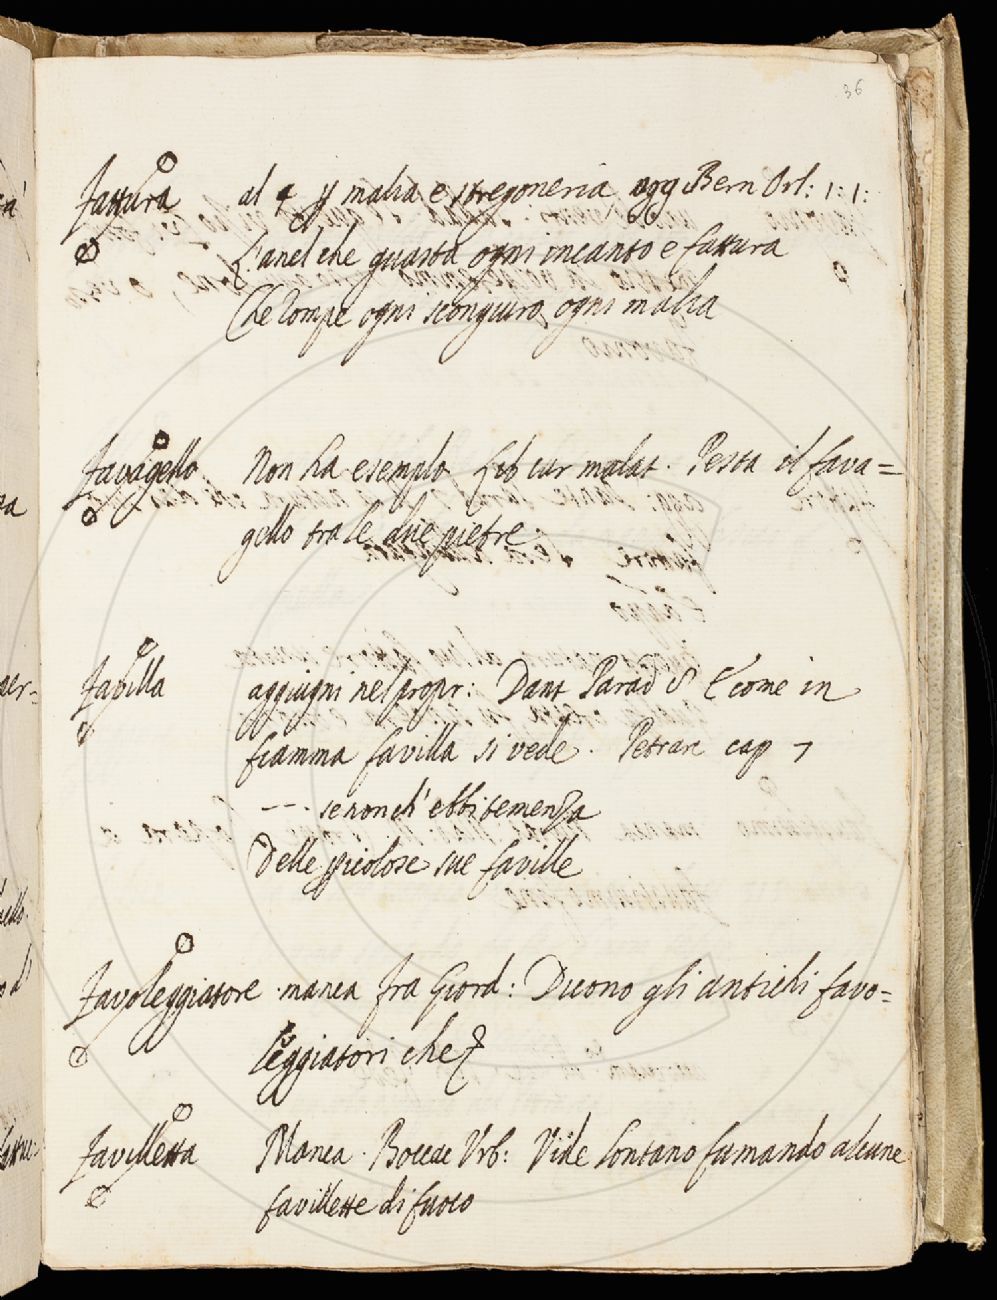 36
Fattura al 4 p malia e stregoneria agg Bern Orl: 1: 1:
L'anel che guasta ogni incanto e fattura
Che rompe ogni scongiuro, ogni malia
Favagello Non ha esempio Lib cur malat. Pesta il fava=
gello tra le due pietre
Favilla aggiugni nel propr: Dant Parad 8 E come in
fiamma favilla si vede. Petrarc cap 7
---- se non ch' ebbi temenza
Delle pericolose sue faville
Favoleggiatore manca fra Giord: Dicono gli antichi favo=
leggiatori che
Favilletta Manca. Boccac Urb: Vide lontano fumando alcune
favillette di fuoco